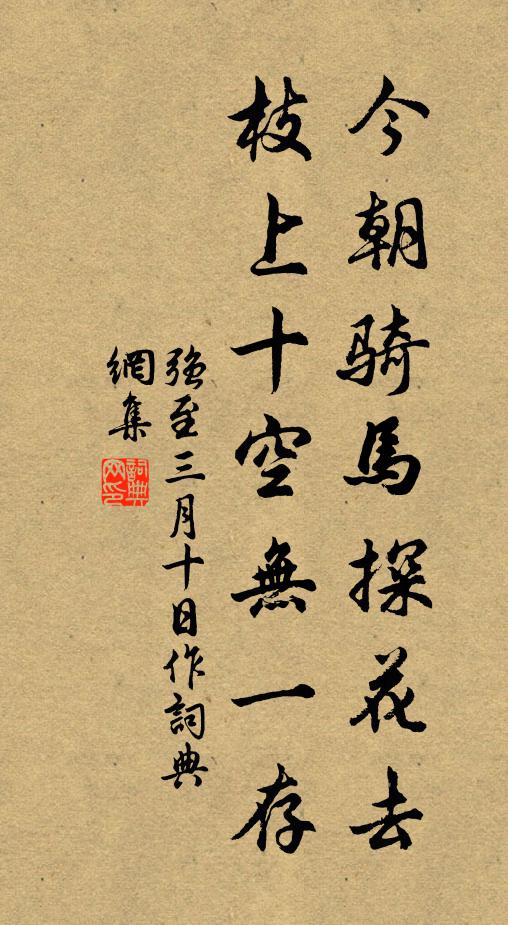 今朝騎馬探花去
枝上十空無一存
強至三月十日作詞典
網集
詞典網印